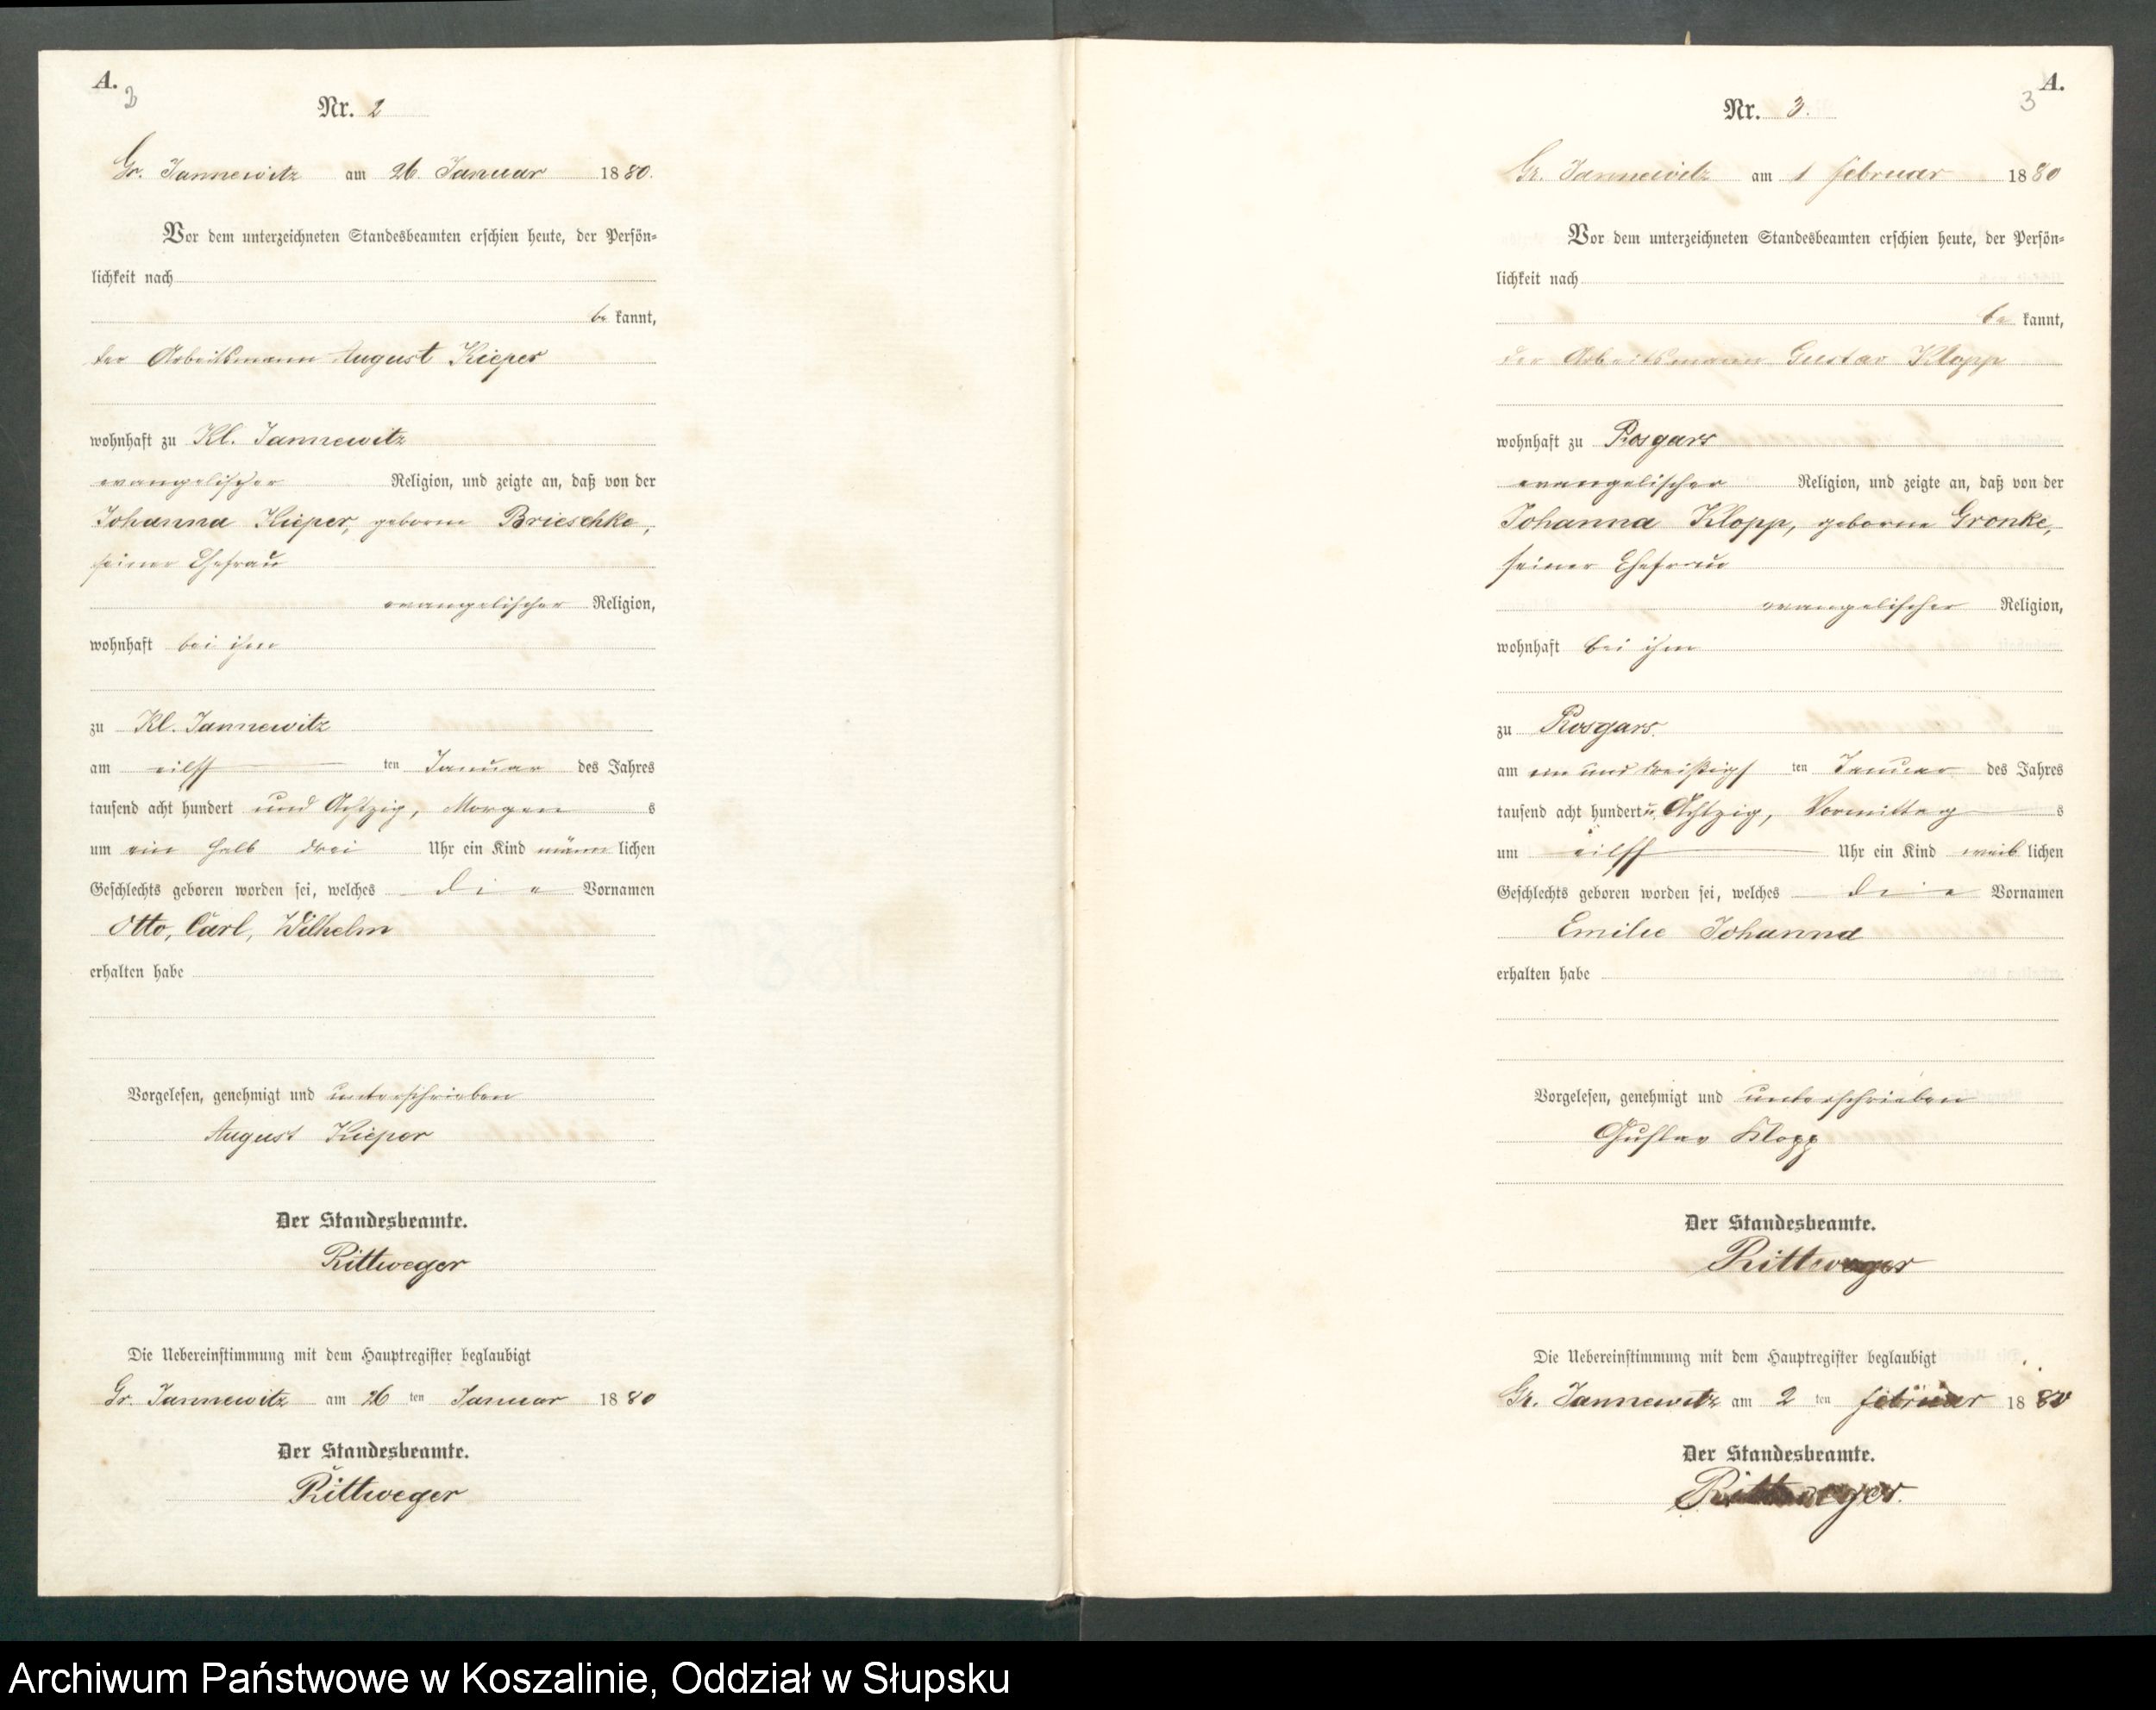 A.
3
Nr. 2
Gr. Jannewitz am 26. Januar 1880.
Vor dem unterzeichneten Standesbeamten erschien heute, der Persön-
lichkeit nach
be kannt,
der Arbeitsmann August Kieper
wohnhaft zu Kl. Jannewitz
evangelischer Religion, und zeigte an, daß von der
Johanna Kieper, geborne Brieschke,
seiner Ehefrau
evangelischer Religion,
wohnhaft bei ihm
zu Kl. Jannewitz
am eilf ten Januar des Jahres
tausend acht hundert und Achtzig, Morgen s
um ein halb drei Uhr ein Kind männ lichen
Geschlechts geboren worden sei, welches die Vornamen
Otto, Carl, Wilhelm
erhalten habe
Vorgelesen, genehmigt und unterschrieben
August Kieper
Der Standesbeamte.
Rittweger
Die Uebereinstimmung mit dem Hauptregister beglaubigt
Gr. Jannewitz am 26 ten Januar 1880
Der Standesbeamte.
Rittweger
A.
3
Nr. 3.
Gr. Jannewitz am 1 Februar 1880
Vor dem unterzeichneten Standesbeamten erschien heute, der Persön-
lichkeit nach
be kannt,
der Arbeitsmann Gustav Klopp
wohnhaft zu Rosgars
evangelischer Religion, und zeigte an, daß von der
Johanna Klopp, geborne Gronke,
seiner Ehefrau
evangelischer Religion,
wohnhaft bei ihm
zu Rosgars.
am ein und dreißigs ten Januar des Jahres
tausend acht hundert u. Achtzig, Vormittag s
um eilf Uhr ein Kind weib lichen
Geschlechts geboren worden sei, welches die Vornamen
Emilie Johanna
erhalten habe
Vorgelesen, genehmigt und unterschrieben
Gustav Klopp
Der Standesbeamte.
Rittweger
Die Uebereinstimmung mit dem Hauptregister beglaubigt
Gr. Jannewitz am 2 ten Februar 1880
Der Standesbeamte.
Rittweger.
Archiwum Państwowe w Koszalinie, Oddział w Słupsku